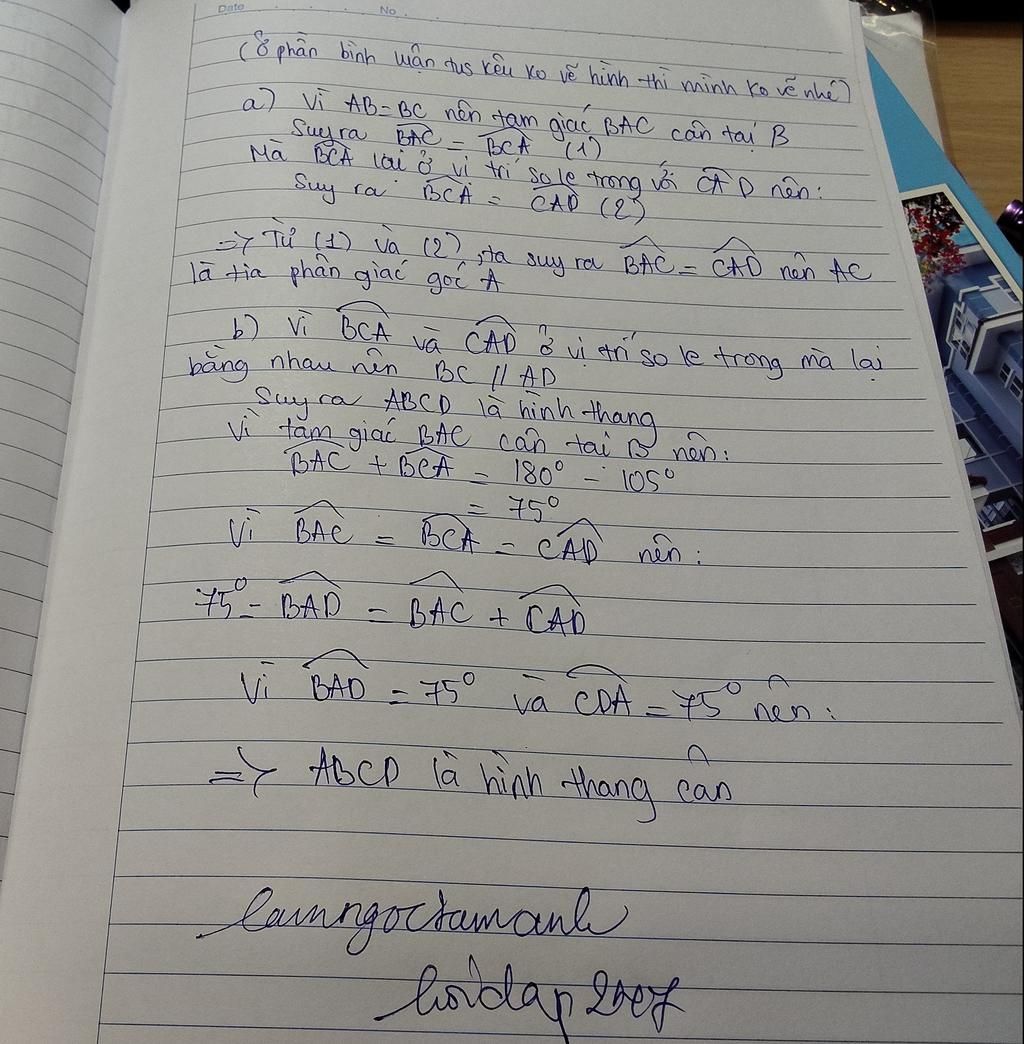 Date No
(Ở phần bình luận tus kêu ko vẽ hình thì mình ko vẽ nhé)
a) Vì AB=BC nên tam giác BAC cân tại B
Suy ra BAC = BCA (1)
Mà BCA lại ở vị trí so le trong với CAD nên:
Suy ra BCA = CAD (2)
=> Từ (1) và (2), ta suy ra BAC = CAD nên AC
là tia phân giác góc A
b) Vì BCA và CAD ở vị trí so le trong mà lại
bằng nhau nên BC // AD
Suy ra ABCD là hình thang
Vì tam giác BAC cân tại B nên:
BAC + BCA = 180° - 105°
= 75°
Vì BAC = BCA = CAD nên:
75° = BAD = BAC + CAD
Vì BAD = 75° và CDA = 75° nên:
=> ABCD là hình thang cân
lamngoctamanh
hoidap2007